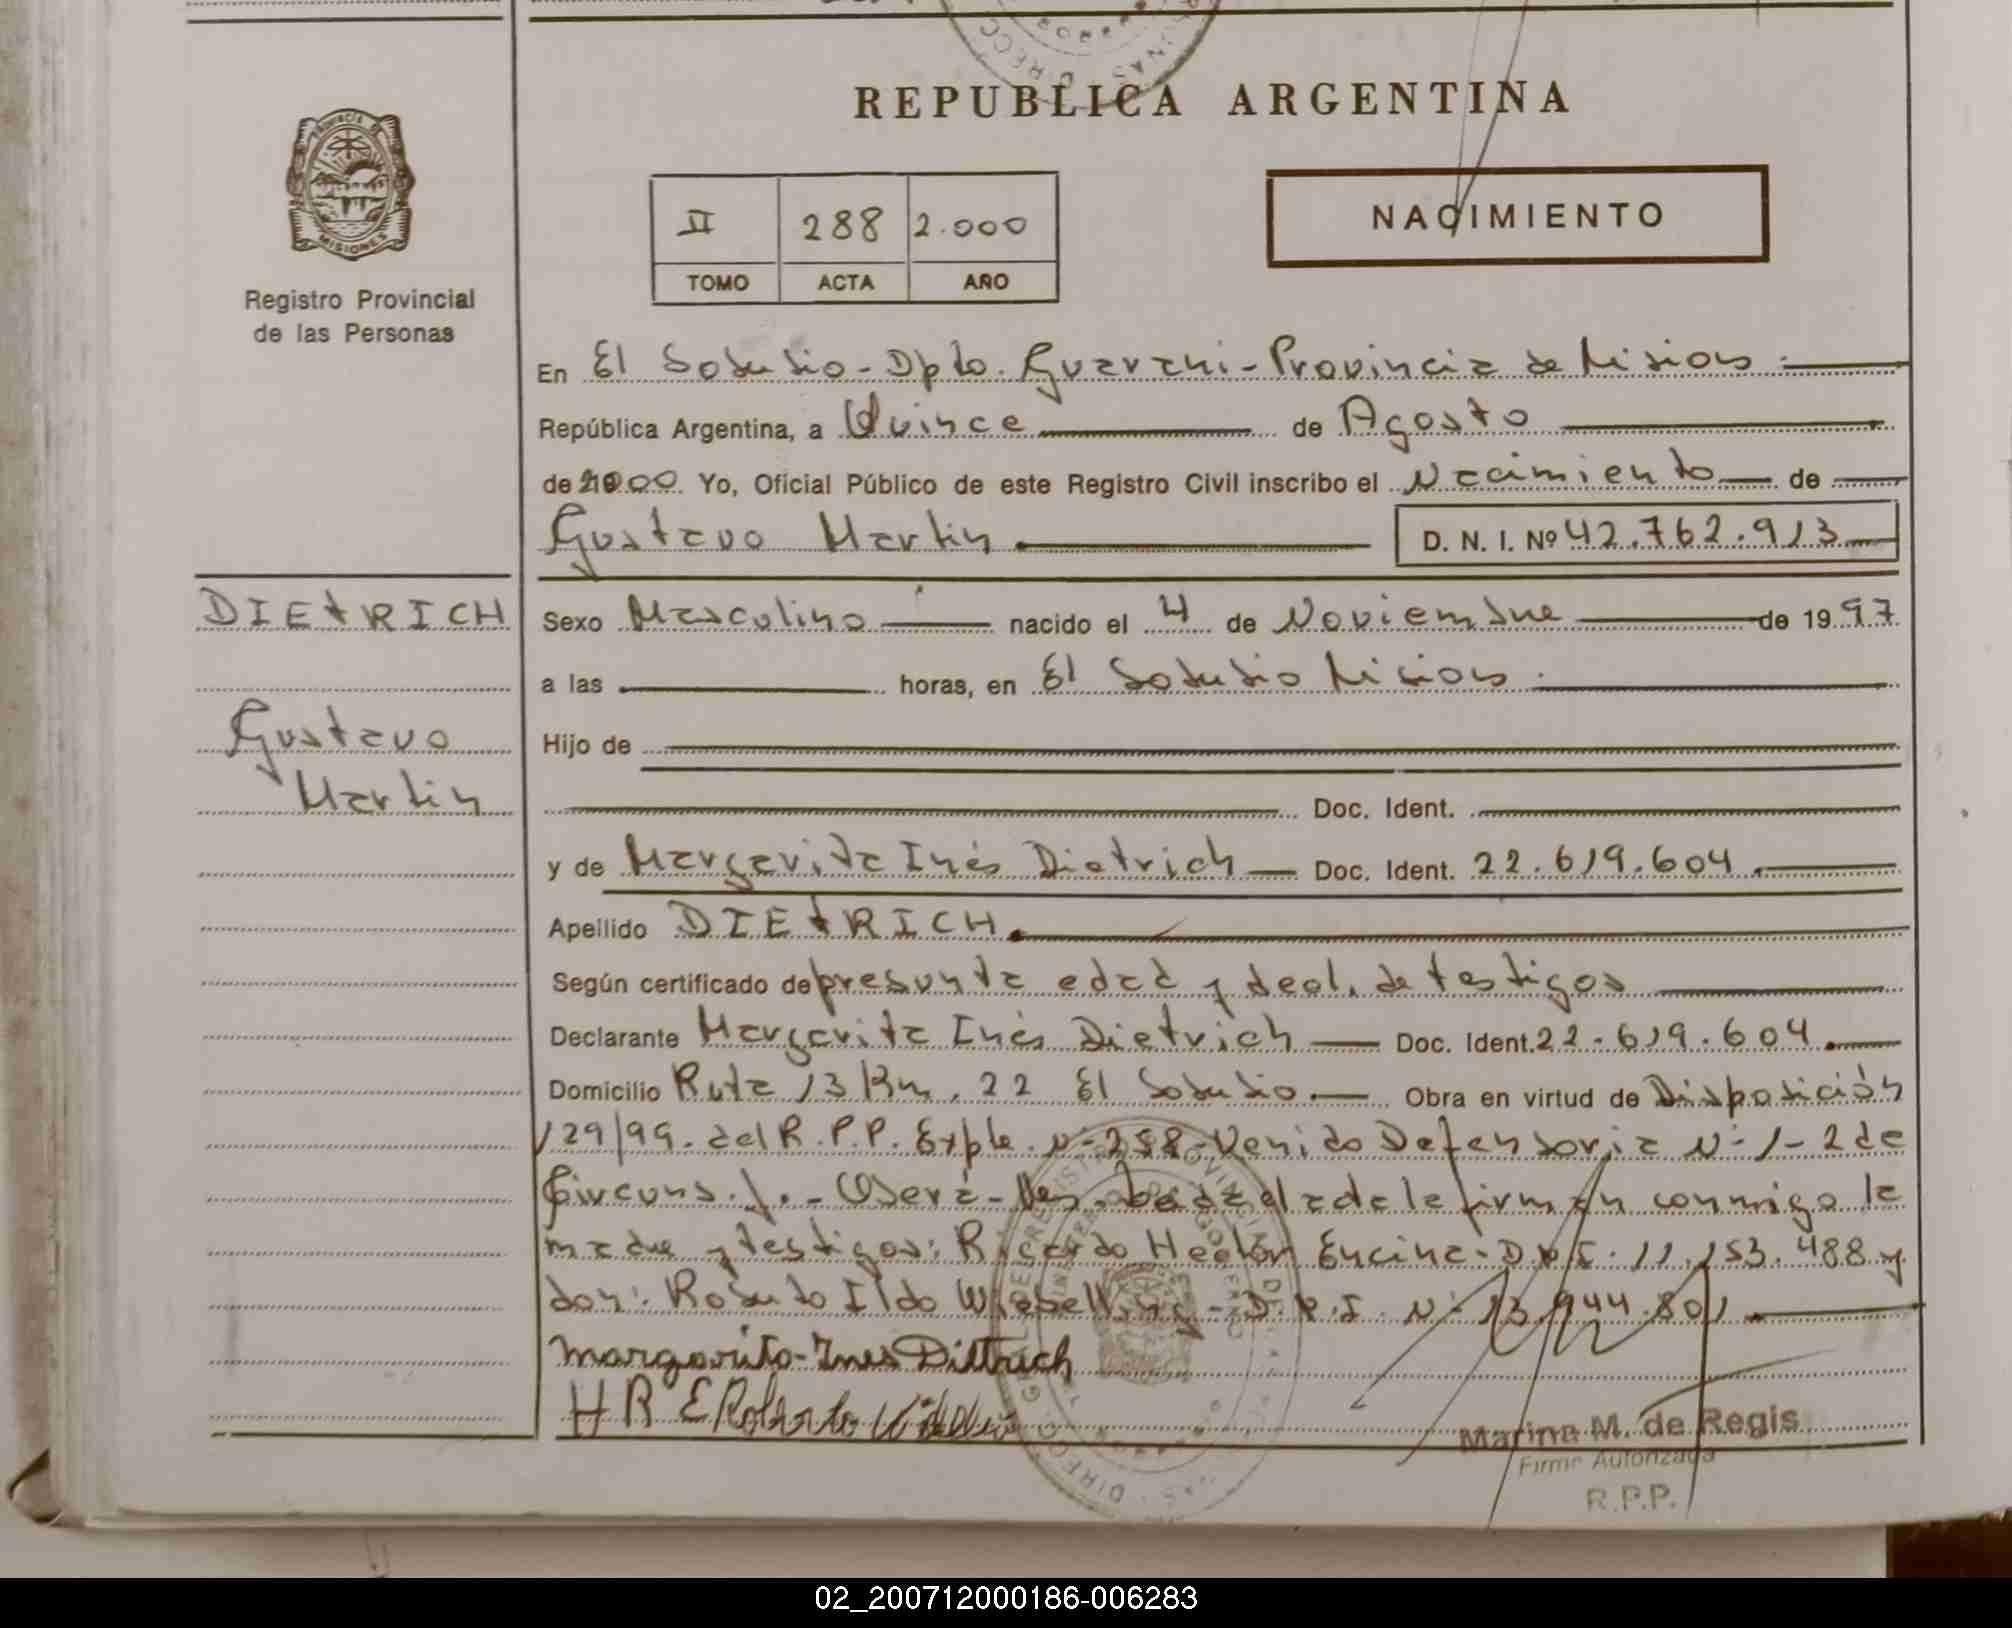 REPUBLICA ARGENTINA
PROVINCIA DE
MISIONES
Registro Provincial
de las Personas
II 288 2.000
TOMO ACTA AÑO
NACIMIENTO
En El Soberbio - Dpto. Guarani - Provincia de Misiones.
República Argentina, a Quince de Agosto
de 2000 Yo, Oficial Público de este Registro Civil inscribo el Nacimiento de
Gustavo Martin D. N. I. Nº 42.762.913
DIETRICH
Sexo Masculino nacido el 4 de Noviembre de 1997
a las horas, en El Soberbio Misiones.
Gustavo
Martin
Hijo de
Doc. Ident.
y de Margarita Inés Dietrich Doc. Ident. 22.619.604
Apellido DIETRICH.
Según certificado de presunta edad y decl. de testigos
Declarante Margarita Inés Dietrich Doc. Ident. 22.619.604.
Domicilio Ruta 13 Km. 22 El Soberbio. Obra en virtud de Disposición
129/99. del R.P.P. Expte. Nº 258- Venido Defensoria Nº 1- 2 de
Circuns. J.- Oberá- Mes. leida firman conmigo la
madre y testigos: Ricardo Hector Encina- D.N.I. 11.153.488 y
don: Roberto Ildo D.N.I. Nº 13.944.801.
Margarita Ines Dittrich
H R E Roberto
Marina M. de Regis
Firma Autorizada
R.P.P.
02_200712000186-006283